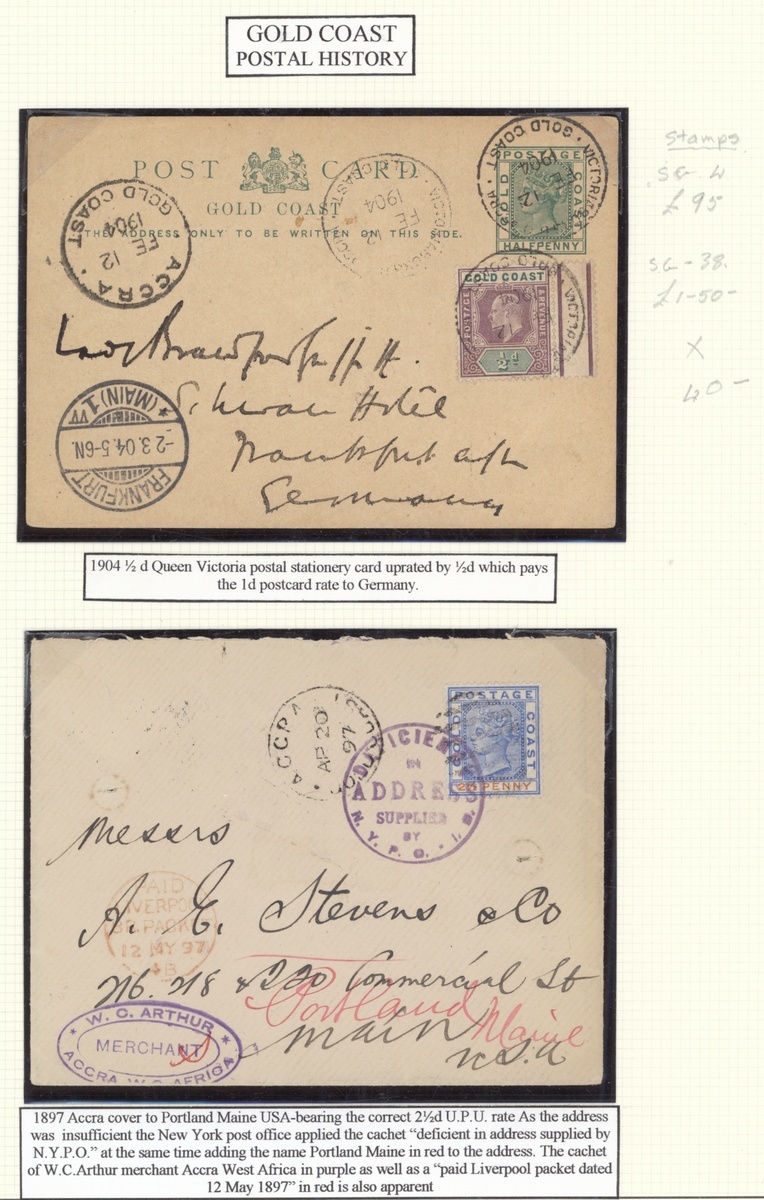 GOLD COAST
POSTAL HISTORY
Stamps
SG
£95
SG - 38.
£1-50-
X
40-
POST CARD
GOLD COAST
THE ADDRESS ONLY TO BE WRITTEN ON THIS SIDE.
POSTAGE
GOLD COAST
HALFPENNY
ACCRA · GOLD COAST
12
FE
1904
12
FE
1904
VICTORIABORG · GOLD COAST
12
FE
1904
GOLD COAST
POSTAGE & REVENUE
½d
FRANKFURT
-2.3.04.5-6N.
* (MAIN) 1
Hotel
Frankfurt
Germany
1904 ½ d Queen Victoria postal stationery card uprated by ½d which pays
the 1d postcard rate to Germany.
ACCRA
AP 20
97
POSTAGE
GOLD COAST
2½ PENNY
DEFICIENCY
IN
ADDRESS
SUPPLIED
BY
N. Y. P. O.
Messrs
A. E. Stevens & Co
216. 218 & 220 Commercial St
Portland Maine
Main
U.S.A
PAID
LIVERPOOL
BR. PACKET
12 MY 97
W. C. ARTHUR
MERCHANT
ACCRA W.C. AFRICA
1897 Accra cover to Portland Maine USA-bearing the correct 2½d U.P.U. rate As the address
was insufficient the New York post office applied the cachet “deficient in address supplied by
N.Y.P.O.” at the same time adding the name Portland Maine in red to the address. The cachet
of W.C.Arthur merchant Accra West Africa in purple as well as a “paid Liverpool packet dated
12 May 1897” in red is also apparent